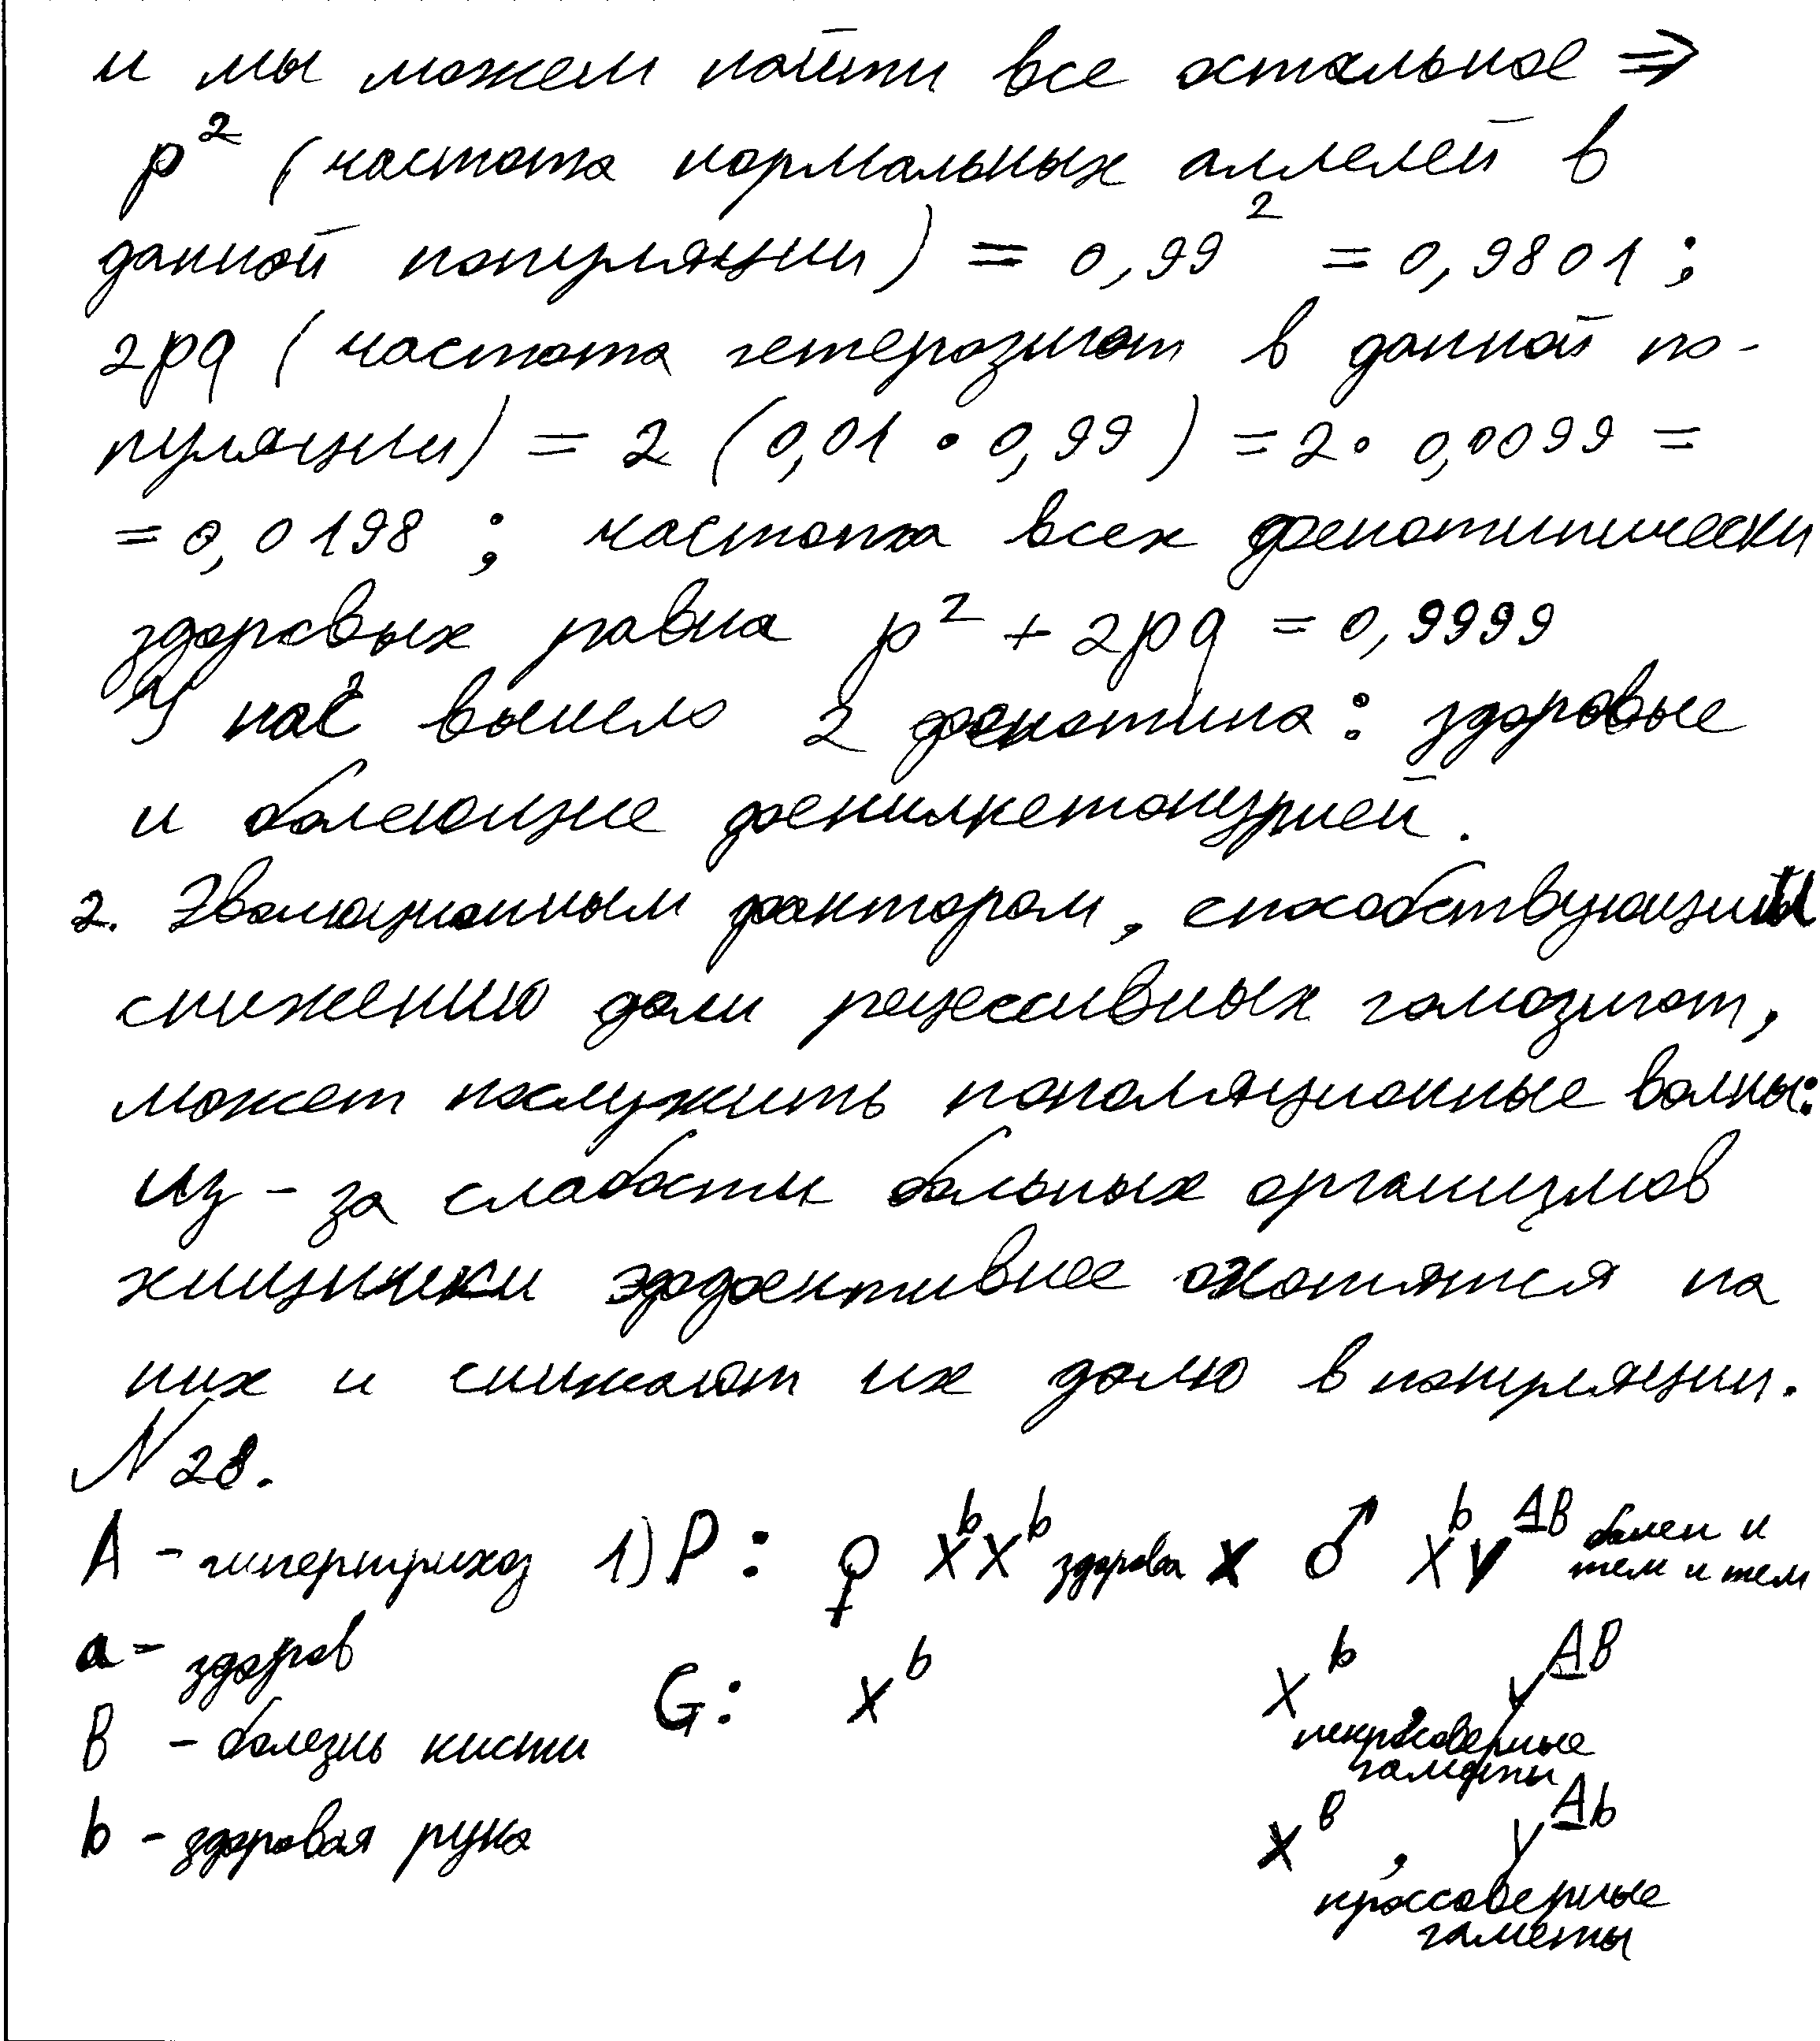 и мы можем найти все остальное ⇒
p² (частота нормальных аллелей в
данной популяции) = 0,99² = 0,9801 ;
2pq (частота гетерозигот в данной по-
пуляции) = 2 (0,01 • 0,99) = 2 • 0,0099 =
= 0,0198 ; частота всех фенотипически
здоровых равна p² + 2pq = 0,9999
У нас вышло 2 фенотипа: здоровые
и болеющие фенилкетонурией.
2. Эволюционным фактором, способствующим
снижению доли рецессивных гомозигот,
может послужить пополяционные волны:
из-за слабости больных организмов
хищники эффективнее охотятся на
них и снижают их долю в популяции.
N 28.
A - гипертрихоз 1) P: ♀ XᵇXᵇ здорова x ♂ XᵇYᴬᴮ болен и тем и тем
a - здоров
G: Xᵇ Xᵇ , Yᴬᴮ
B - болезнь кисти некроссоверные гаметы
b - здоровая рука Xᴮ , Yᴬᵇ
кроссоверные
гаметы